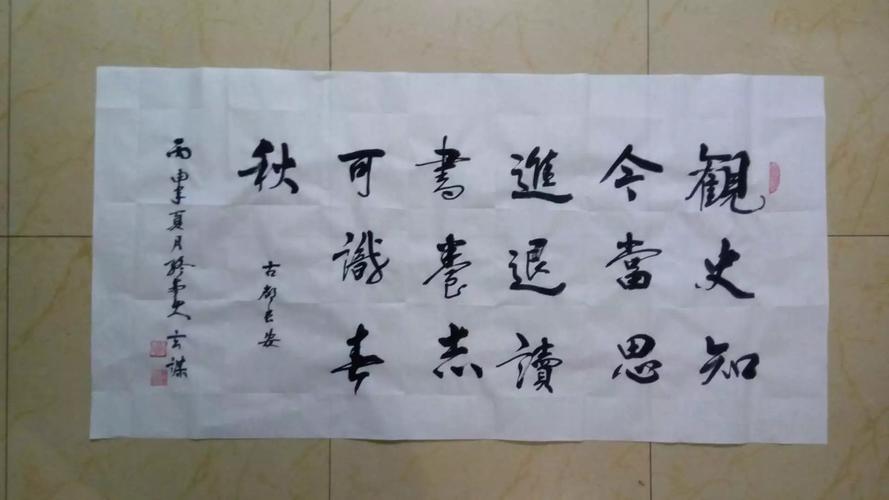 觀史知
今當思
進退讀
書養志
可識春
秋
古都长安
丙申年夏月
玄謀